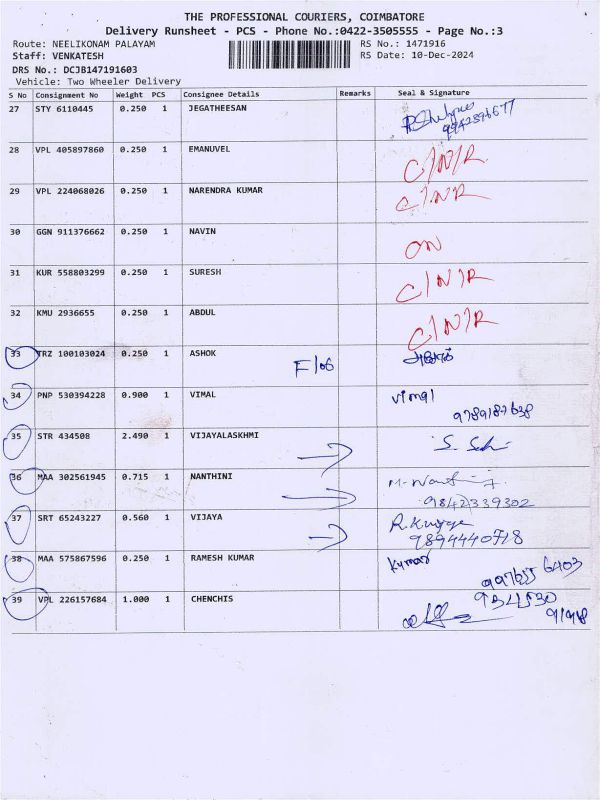 THE PROFESSIONAL COURIERS, COIMBATORE
Delivery Runsheet - PCS - Phone No.:0422-3505555 - Page No.:3
Route: NEELIKONAM PALAYAM RS No.: 1471916
Staff: VENKATESH RS Date: 10-Dec-2024
DRS No.: DCJB147191603
Vehicle: Two Wheeler Delivery
S No Consignment No Weight PCS Consignee Details Remarks Seal & Signature
27 STY 6110445 0.250 1 JEGATHEESAN
28 VPL 405897860 0.250 1 EMANUVEL C/N/R
29 VPL 224068026 0.250 1 NARENDRA KUMAR C/NR
30 GGN 911376662 0.250 1 NAVIN ON
31 KUR 558803299 0.250 1 SURESH C/N/R
32 KMU 2936655 0.250 1 ABDUL C/N/R
33 TRZ 100103024 0.250 1 ASHOK F106
34 PNP 530394228 0.900 1 VIMAL vimal
9789187638
35 STR 434508 2.490 1 VIJAYALASKHMI
36 MAA 302561945 0.715 1 NANTHINI
9842339302
37 SRT 65243227 0.560 1 VIJAYA
9894440718
38 MAA 575867596 0.250 1 RAMESH KUMAR Kumar
39 VPL 226157684 1.000 1 CHENCHIS